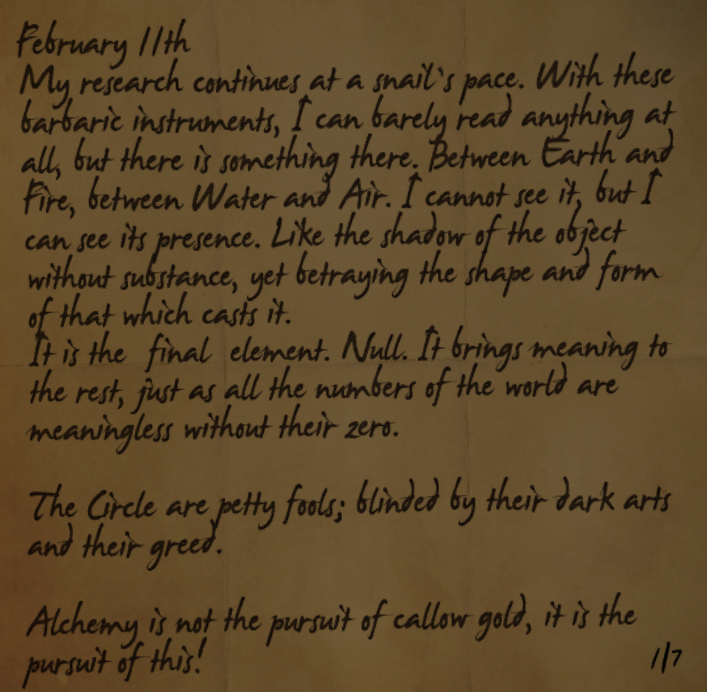 February 11th
My research continues at a snail's pace. With these
barbaric instruments, I can barely read anything at
all, but there is something there. Between Earth and
Fire, between Water and Air. I cannot see it, but I
can see its presence. Like the shadow of the object
without substance, yet betraying the shape and form
of that which casts it.
It is the final element. Null. It brings meaning to
the rest, just as all the numbers of the world are
meaningless without their zero.
The Circle are petty fools; blinded by their dark arts
and their greed.
Alchemy is not the pursuit of callow gold, it is the
pursuit of this!
1/7